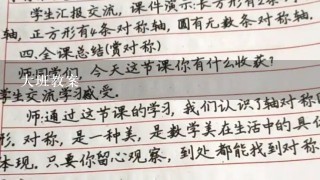 学生汇报交流，课件演示：长方形有2条
轴，正方形有4条对称轴，圆有无数条对称轴.
四.全课总结(赏对称)
今天这节课你有什么收获？
大班教案
学生交流学习感受.
师：通过这节课的学习，我们认识了轴对称图
形.对称，是一种美，是数学美在生活中的具体
体现.只要你留心观察，到处都能找到对称